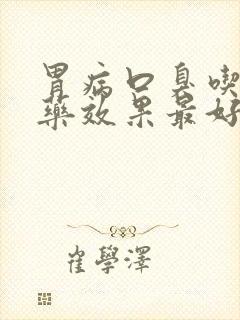 胃病口臭喫
藥效果最好
崔學澤